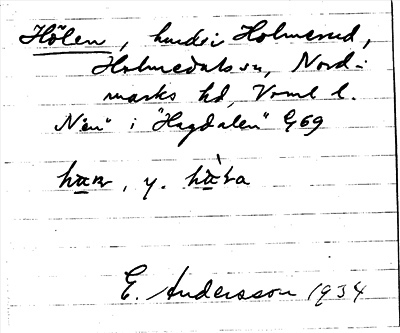 Hölen, hundi Holmerud,
Holmedals sn, Nord-
marks hd, Vrml l.
N:en i "Hagdalen" G69
E. Andersson 1934